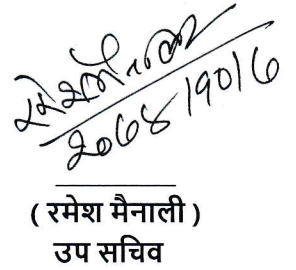 २०७४/१०/७
( रमेश मैनाली )
उप सचिव